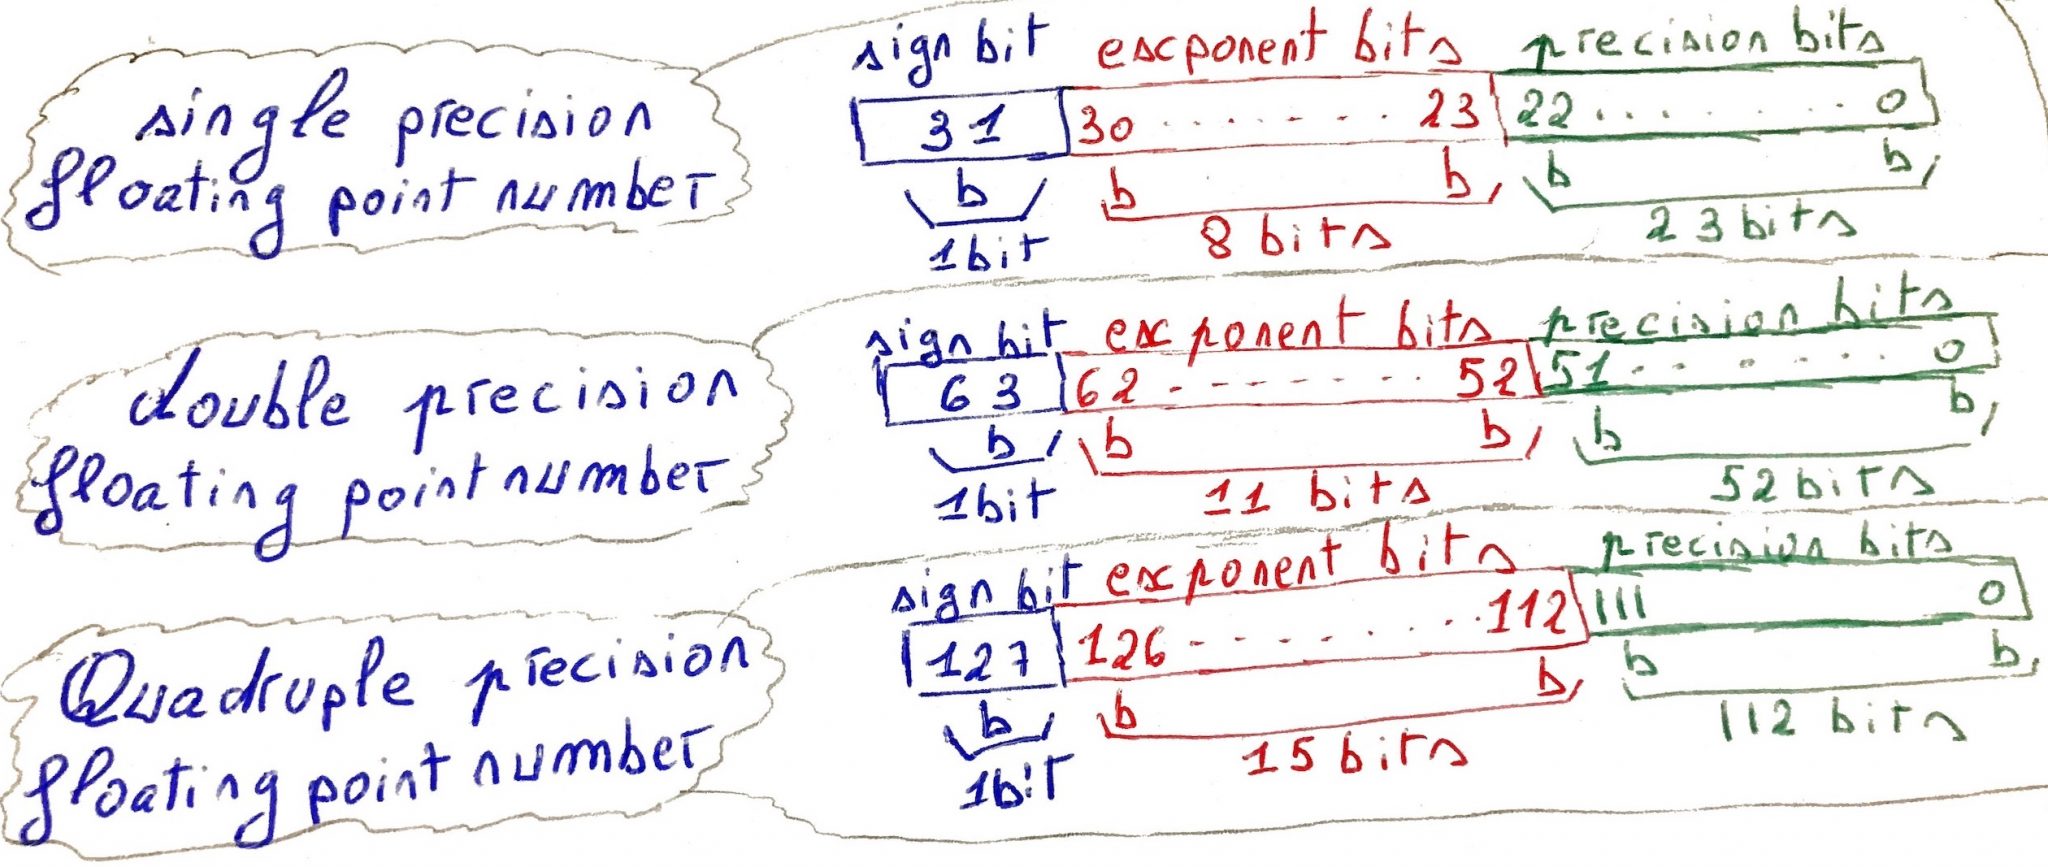 single precision
floating point number
sign bit exponent bits precision bits
31 30 ........ 23 22 ........ 0
b b b b b
1bit 8 bits 23 bits
double precision
floating point number
sign bit exponent bits precision bits
63 62 ........ 52 51 ........ 0
b b b b b
1bit 11 bits 52 bits
Quadruple precision
floating point number
sign bit exponent bits precision bits
127 126 ........ 112 111 0
b b b b b
1bit 15 bits 112 bits